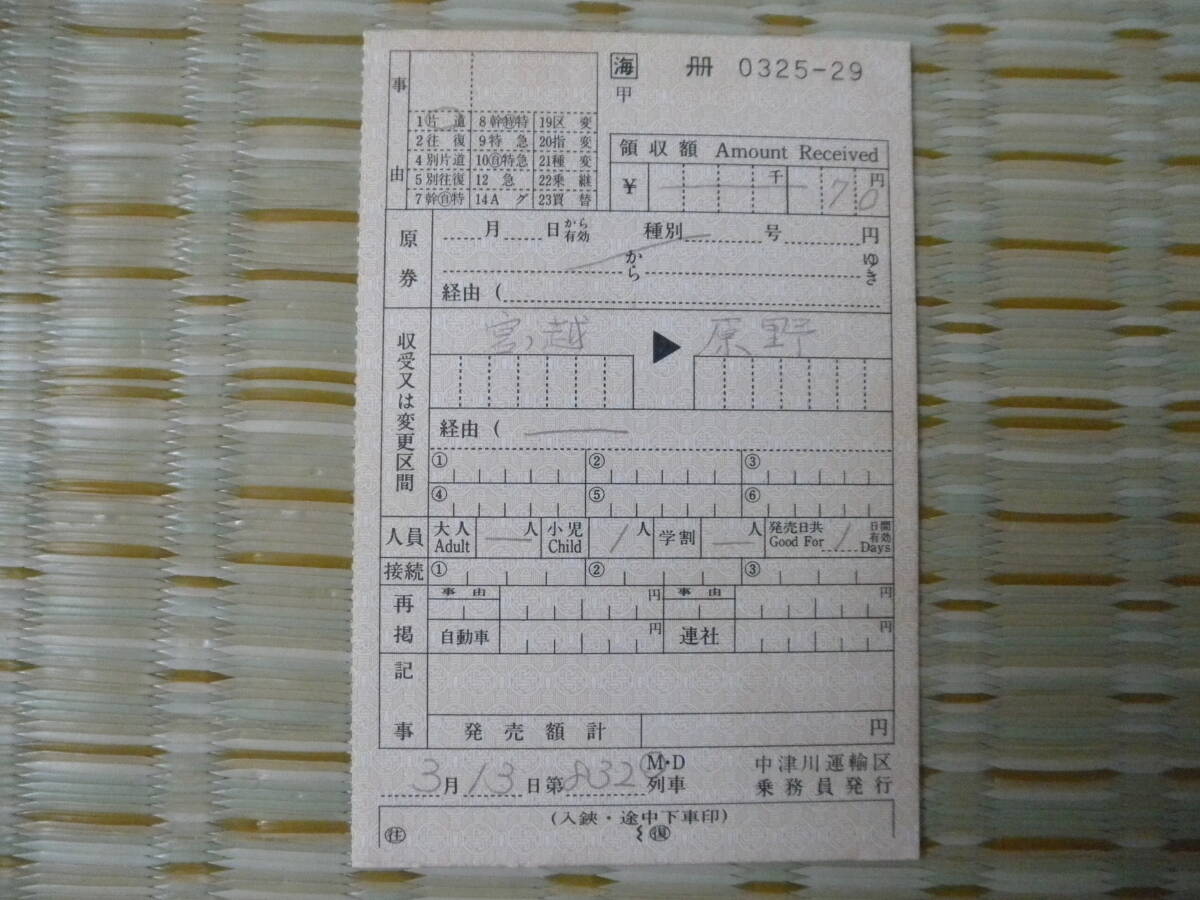 海 冊 0325-29
甲
事由
1片道 8幹特特 19区変
2往復 9特急 20指変
4別片道 10自特急 21種変
5別往復 12急 22乗継
7幹自特 14Aグ 23買替
領収額 Amount Received
¥ 千 70円
原券
月 日から有効 種別 号 円
から ゆき
経由(
収受又は変更区間
宮ノ越 ▶ 原野
経由(
① ② ③
④ ⑤ ⑥
人員 大人 Adult 人 小児 Child 1人 学割 人 発売日共 Good For 1 日間有効 Days
接続 ① ② ③
再掲
事由 円 事由 円
自動車 円 連社 円
記事
発売額計 円
3月13日第832 M・D列車
中津川運輸区
乗務員発行
(入鋏・途中下車印)
往 復